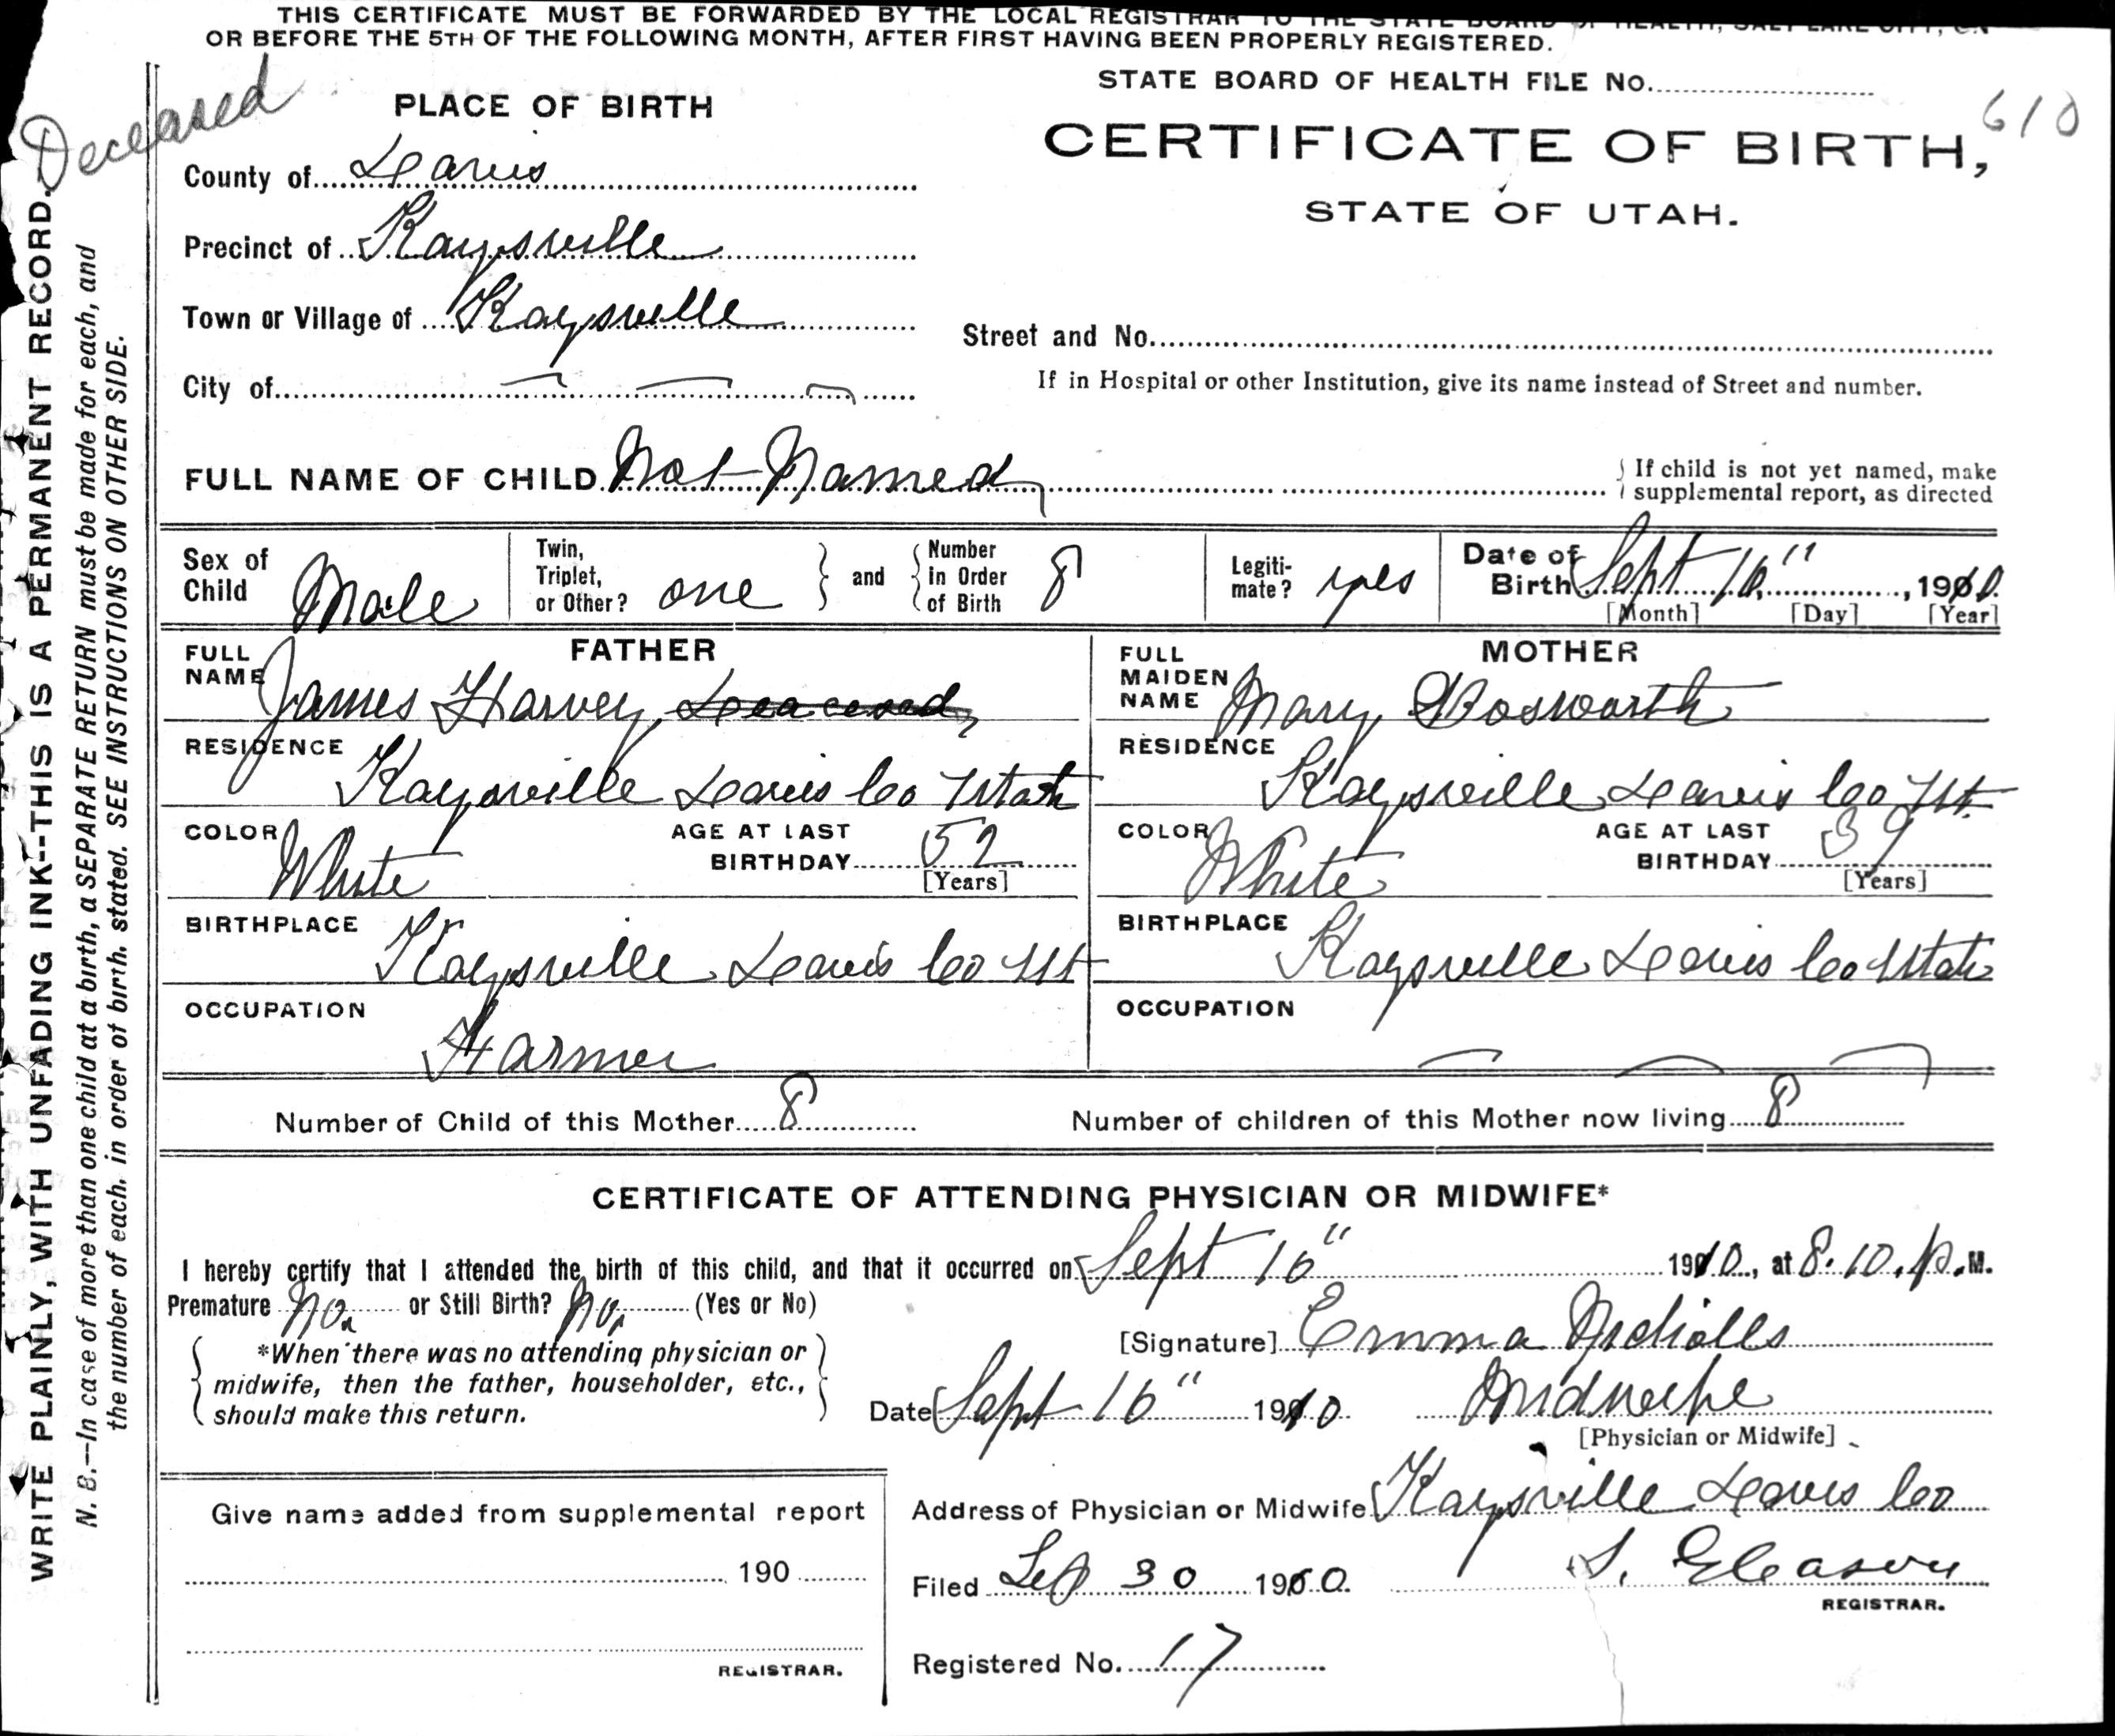 THIS CERTIFICATE MUST BE FORWARDED BY THE LOCAL REGISTRAR TO THE STATE BOARD OF HEALTH, SALT LAKE CITY, ON
OR BEFORE THE 5TH OF THE FOLLOWING MONTH, AFTER FIRST HAVING BEEN PROPERLY REGISTERED.
Deceased
WRITE PLAINLY, WITH UNFADING INK--THIS IS A PERMANENT RECORD.
N. B.--In case of more than one child at a birth, a SEPARATE RETURN must be made for each, and
the number of each, in order of birth, stated. SEE INSTRUCTIONS ON OTHER SIDE.
STATE BOARD OF HEALTH FILE No.
610
CERTIFICATE OF BIRTH,
STATE OF UTAH.
PLACE OF BIRTH
County of Davis
Precinct of Kaysville
Town or Village of Kaysville
City of
Street and No.
If in Hospital or other Institution, give its name instead of Street and number.
FULL NAME OF CHILD Not Named
If child is not yet named, make
supplemental report, as directed
Sex of Child Male
Twin, Triplet, or Other? one and Number in Order of Birth 8
Legitimate? yes
Date of Birth Sept 16", 1910
[Month] [Day] [Year]
FATHER
FULL NAME James Harvey Deaceased
RESIDENCE Kaysville Davis Co Utah
COLOR White
AGE AT LAST BIRTHDAY 52
[Years]
BIRTHPLACE Kaysville Davis Co Ut
OCCUPATION Farmer
MOTHER
FULL MAIDEN NAME Mary Bosworth
RESIDENCE Kaysville Davis Co Ut.
COLOR White
AGE AT LAST BIRTHDAY 39
[Years]
BIRTHPLACE Kaysville Davis Co Utah
OCCUPATION
Number of Child of this Mother 8
Number of children of this Mother now living 8
CERTIFICATE OF ATTENDING PHYSICIAN OR MIDWIFE*
I hereby certify that I attended the birth of this child, and that it occurred on Sept 16" 1910, at 8.10. P.M.
Premature No. or Still Birth? No. (Yes or No)
*When there was no attending physician or
midwife, then the father, householder, etc.,
should make this return.
[Signature] Emma Nicholls
Date Sept 16" 1910
Midwife
[Physician or Midwife]
Address of Physician or Midwife Kaysville Davis Co
Filed Sep 30 1910.
S. Gleason
REGISTRAR.
Registered No. 17
Give name added from supplemental report
190
REGISTRAR.